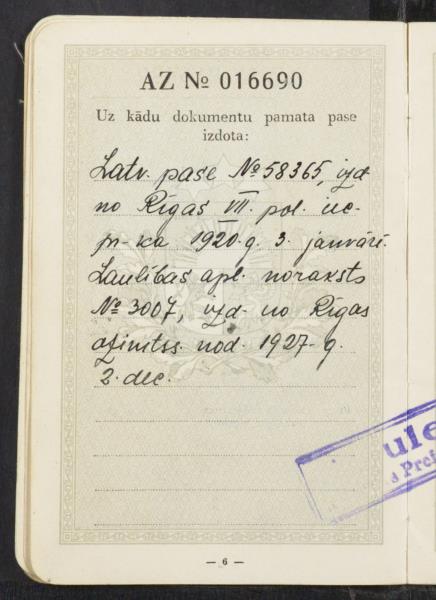 AZ № 016690
Uz kādu dokumentu pamata pase
izdota:
Latv. pase № 58365, izd.
no Rīgas VII. pol. iec.
pr-ka 1920. g. 3. janvārī.
Laulības apl. noraksts
№ 3007, izd. no Rīgas
nod. 1927. g.
2. dec.
— 6 —